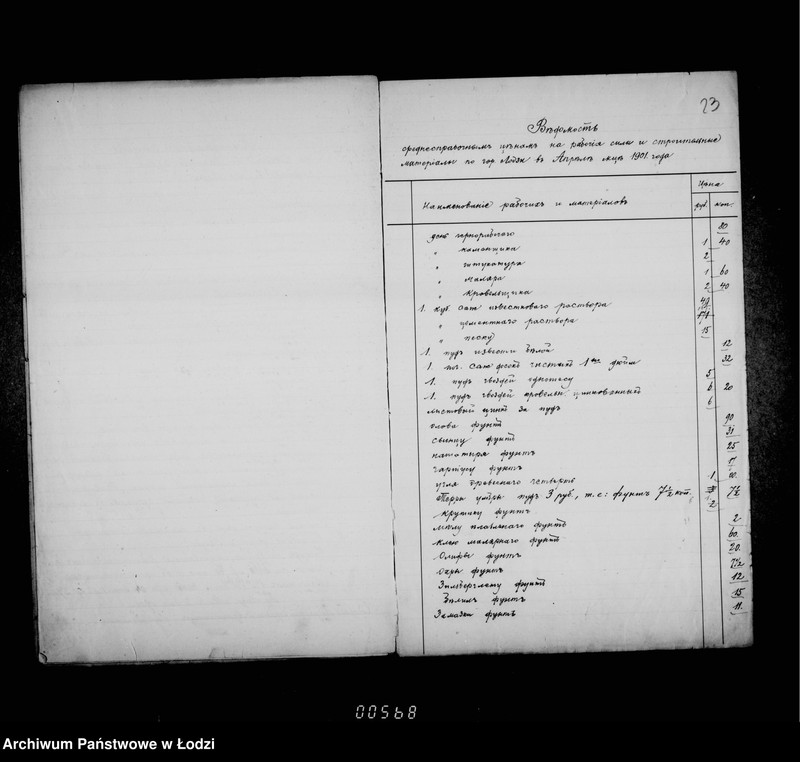 23
Вѣдомость
среднесправочнымъ цѣнамъ на рабочія силы и строительные
матеріалы по гор. Лодзи въ Апрѣлѣ мцѣ 1901 года
Цѣна
Наименованіе рабочихъ и матеріаловъ руб. коп.
день чернорабочаго 80
" каменщика 1 40
" штукатура 2
" маляра 1 60
" кровельщика 2 40
1. куб. саж. известковаго раствора
" цементнаго раствора
" песку 15
1. пудъ извести бѣлой 12
1. пог. саж. досокъ чистыхъ 1 дюйм 32
1. пудъ гвоздей 5
1. пудъ гвоздей кровельн. цинкованный 6 20
листовый цинкъ за пудъ 6
олова фунтъ 90
свинцу фунтъ 31
нашатыря фунтъ 25
гарпіусу фунтъ 17
угля древеснаго четверть 1
Терры умбры пудъ 3 руб., т. е. фунтъ 7½ коп. 7½
фунтъ 2
мѣлу плавленаго фунтъ 2
клею малярнаго фунтъ 60
Олифы фунтъ 20
охры фунтъ 7½
Зильберглету фунтъ 12
Бѣлилъ фунтъ 15
Замазки фунтъ 11
00568
Archiwum Państwowe w Łodzi